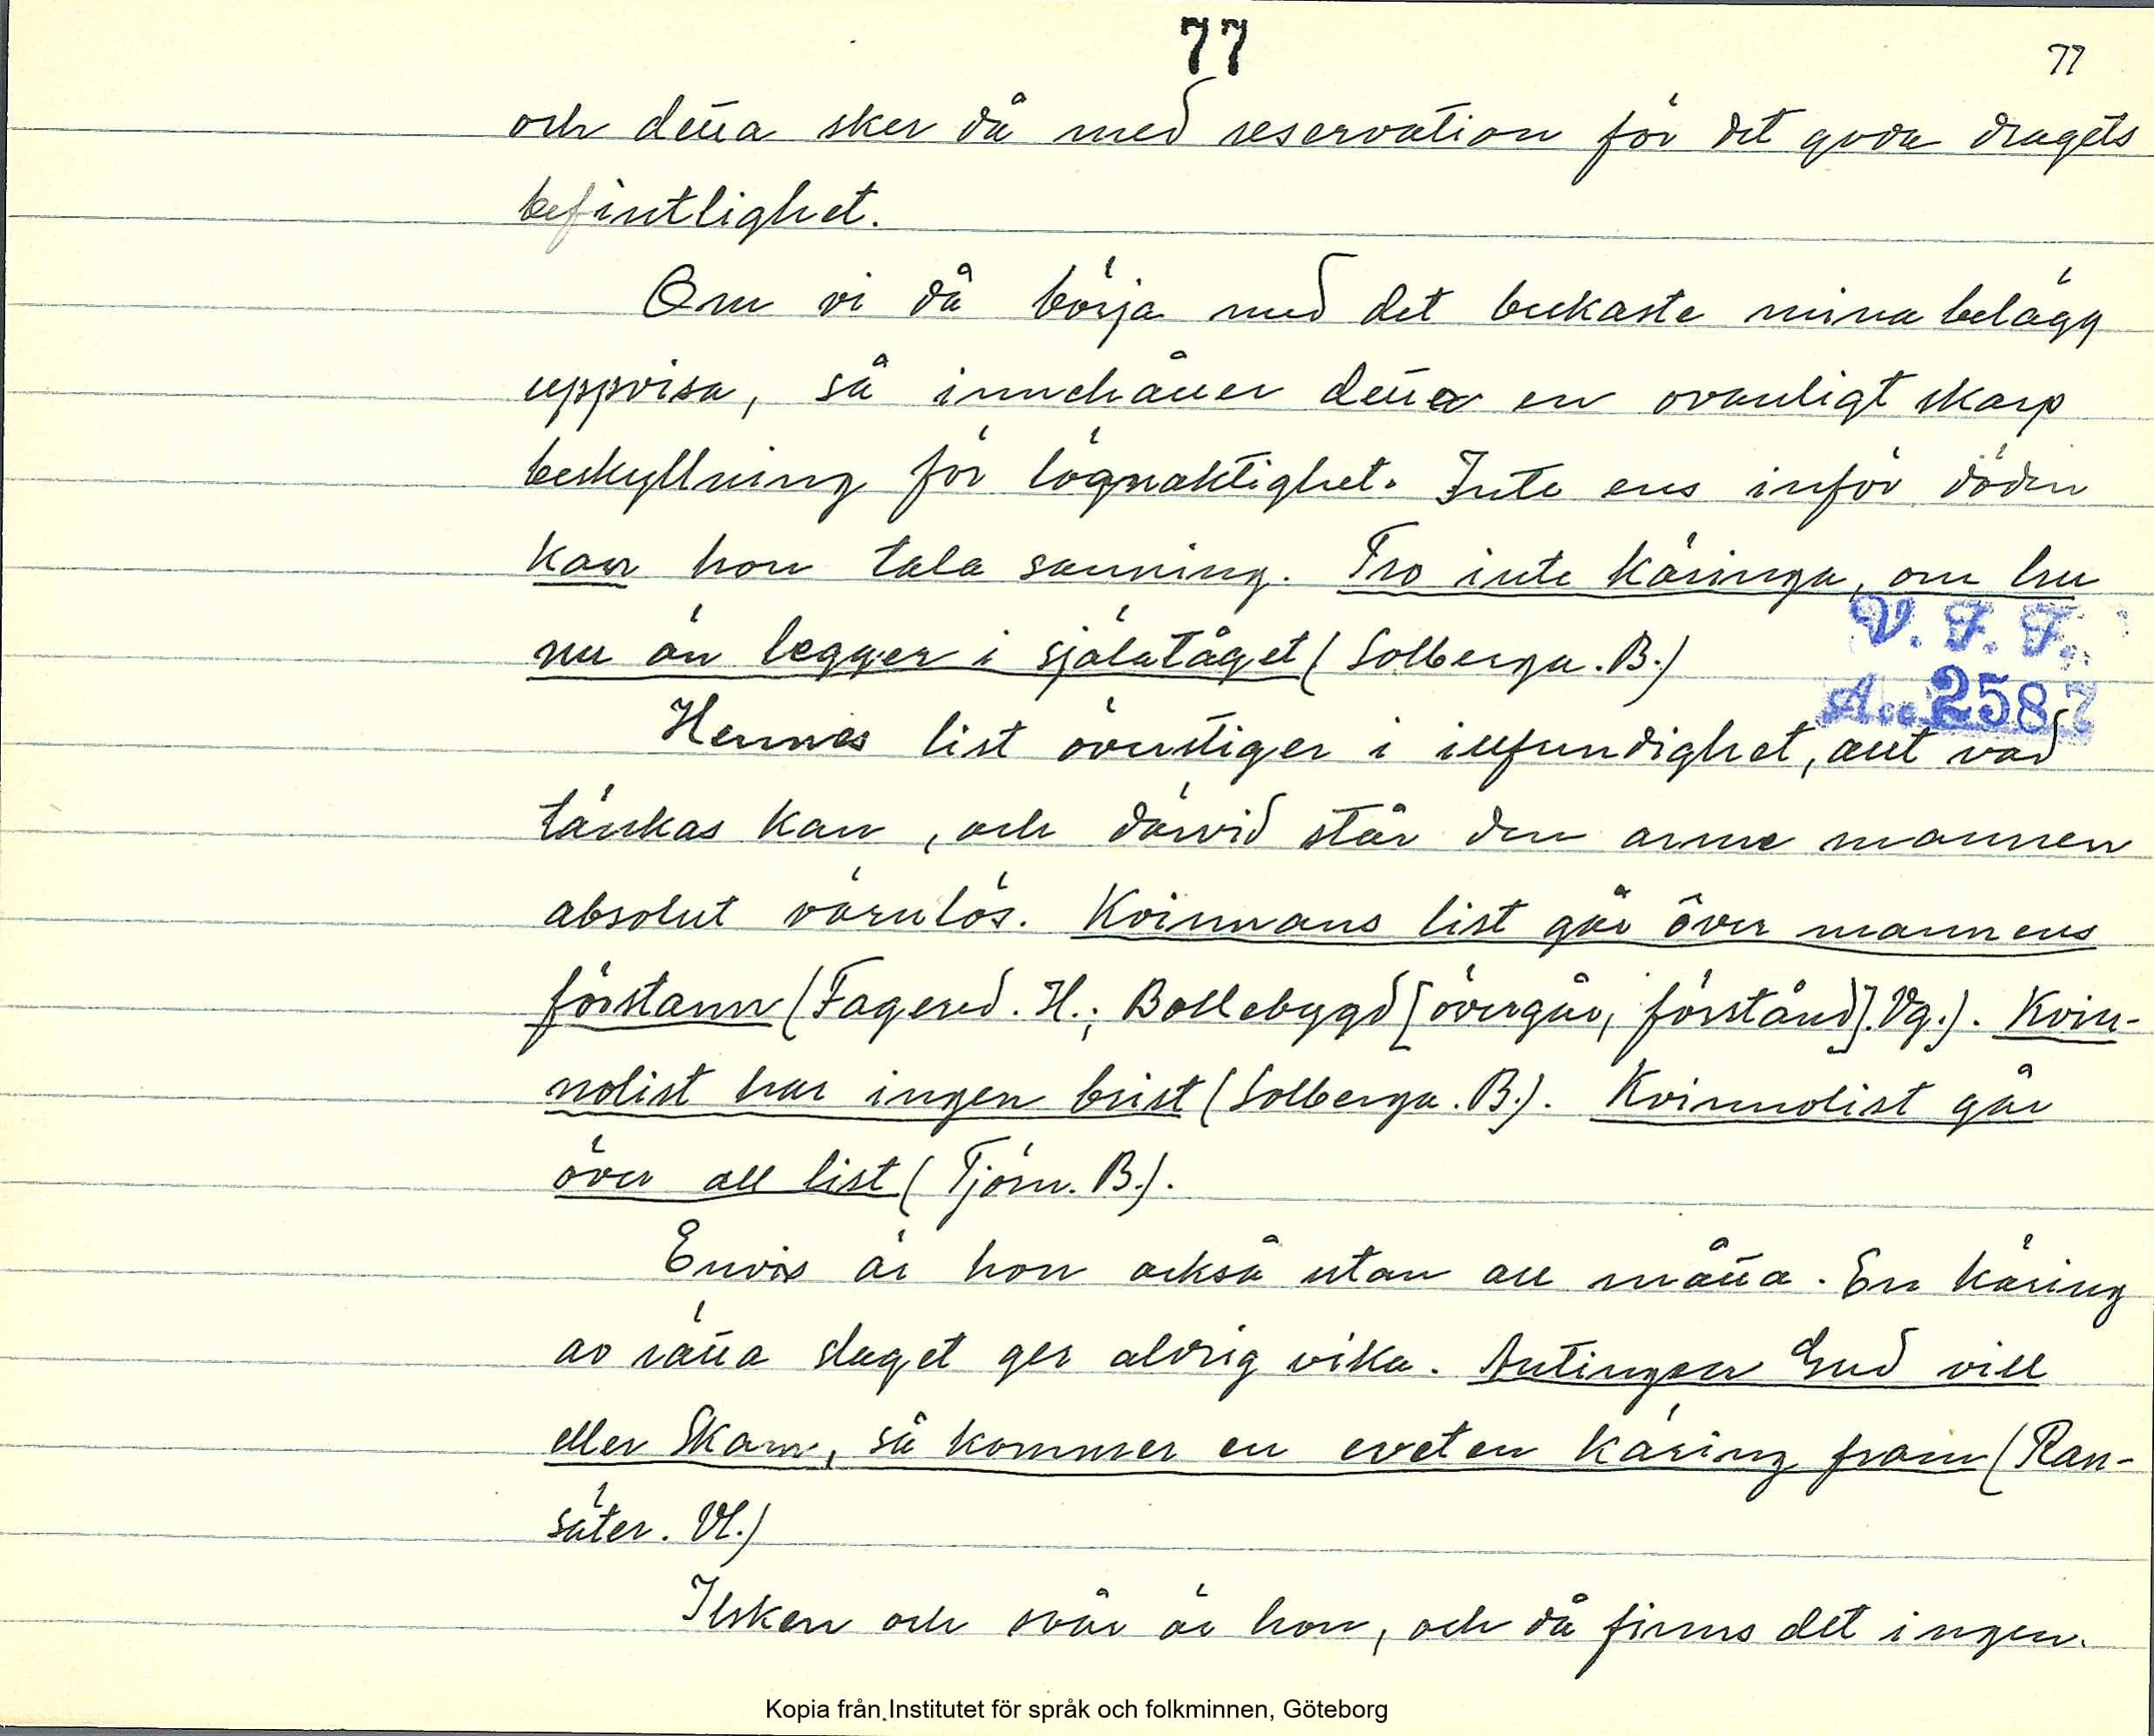 77
77
och detta sker då med reservation för det goda dragets
befintlighet.
Om vi då börja med det beskaste mina belägg
uppvisa, så innehåller detta en ovanligt skarp
beskyllning för lögnaktighet. Inte ens inför döden
kan hon tala sanning. Tro inte käringa, om hu
nu än legger i själatåget (Solberga. B.)
V. F. F.
Acc 2587
Hennes list överstiger i illfundighet, allt vad
tänkas kan, och därvid står den arme mannen
absolut värnlös. Kvinnans list går över mannens
förstann (Fagered. H.; Bollebygd [övergår, förstånd]. Vg.). Kvin-
nolist har ingen brist (Solberga. B.). Kvinnolist går
över all list (Tjörn. B.).
Envis är hon också utan all måtta. En käring
av rätta slaget ger aldrig vika. Antingen Gud vill
eller Skam, så kommer en eveten käring fram (Ran-
säter. Vl.)
Ilsken och svår är hon, och då finns det ingen
Kopia från Institutet för språk och folkminnen, Göteborg